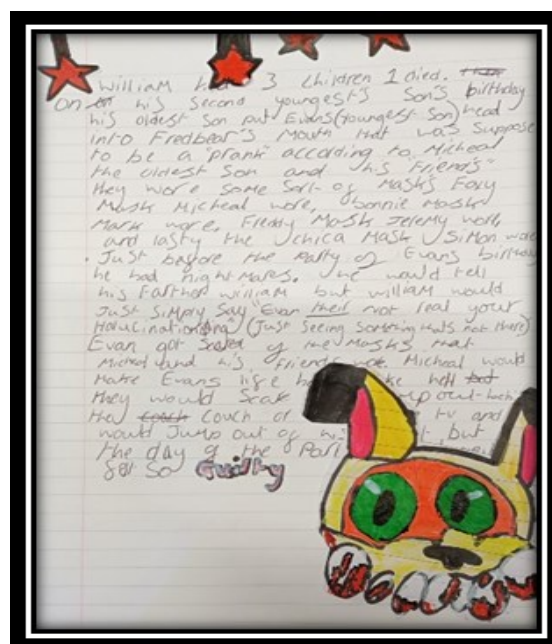 William had 3 children 1 died.
on his second youngest's son's birthday
his oldest son put Evans (youngest son) head
into Fredbear's Mouth that was suppose
to be a "prank" according to Micheal
the oldest son and his "friend's"
they wore some sort of Mask's Foxy
Mask Micheal wore, Bonnie Mask
Mark wore, Freddy Mask Jeremy wore,
and lasty the chica Mask Simon wore
. Just before the Party of Evans birthday
he had nightmares. he would tell
his Farther william but william would
Just simply say "Evan their not real your
(Just seeing something thats not there)
Evan got scared of the Masks that
Micheal and his friends Micheal would
Make Evans life like hell
they would scare
the couch or tv and
would Jump out of but
the day of the
so Guilty